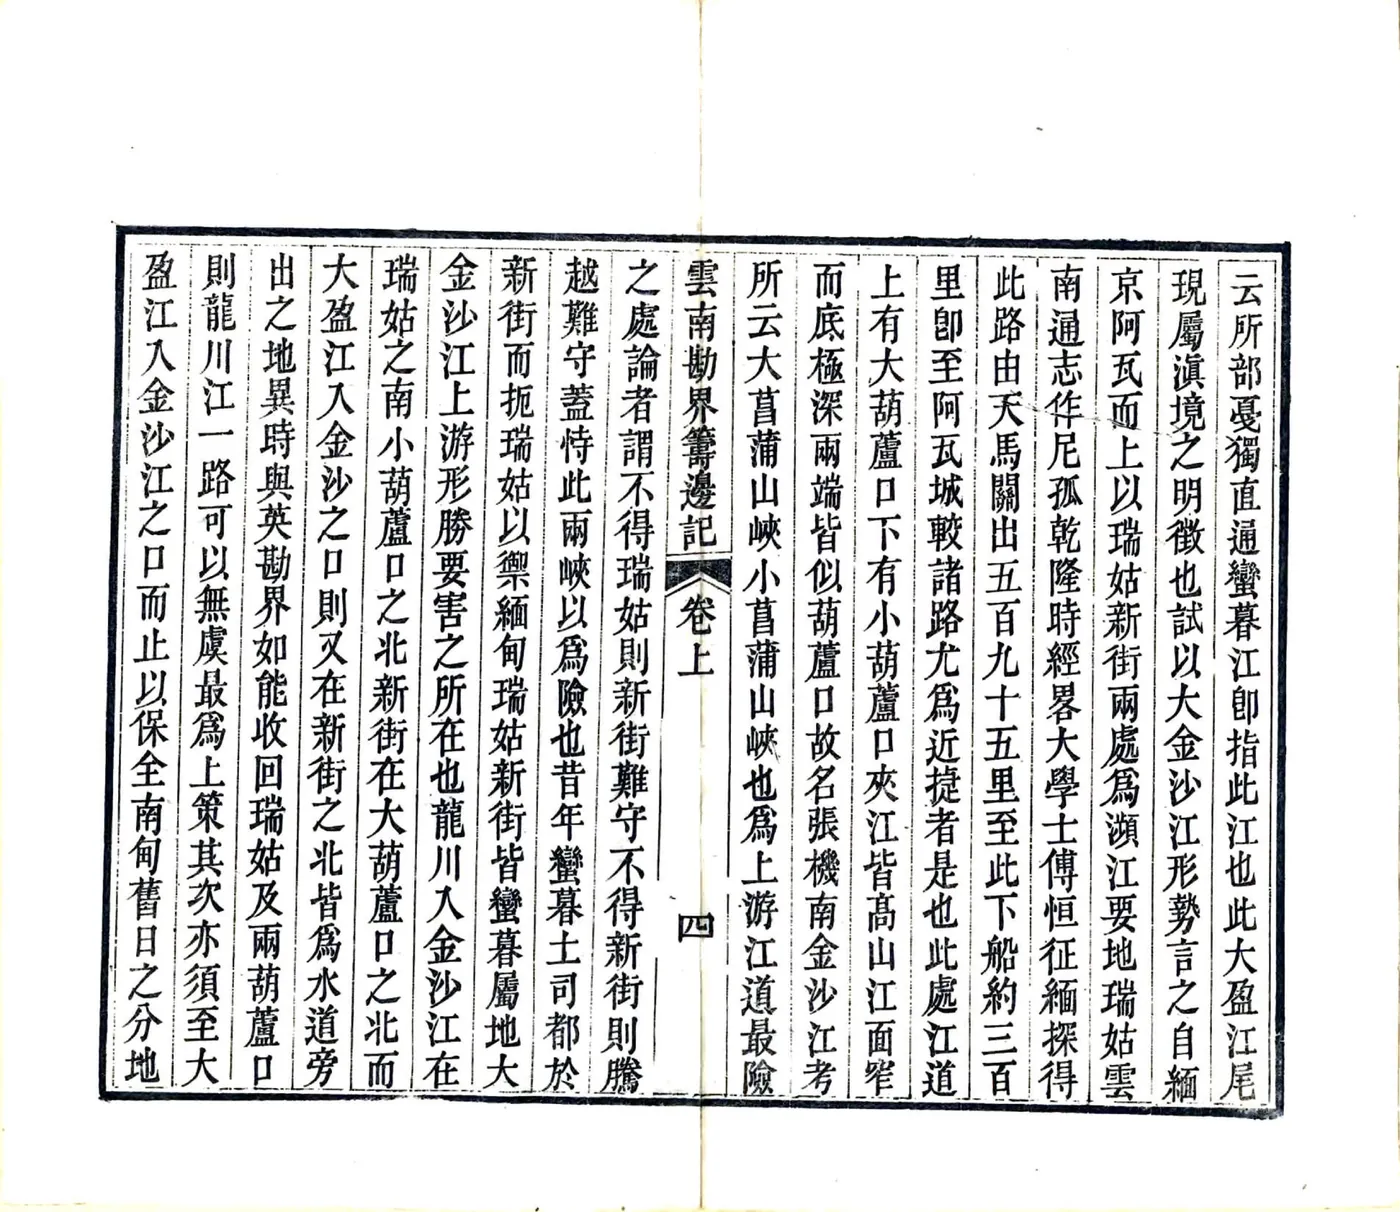 云所部憂獨直通蠻暮江卽指此江也此大盈江尾
現屬滇境之明徵也試以大金沙江形勢言之自緬
京阿瓦而上以瑞姑新街兩處爲瀕江要地瑞姑雲
南通志作尼孤乾隆時經畧大學士傅恒征緬探得
此路由天馬關出五百九十五里至此下船約三百
里卽至阿瓦城較諸路尤爲近捷者是也此處江道
上有大葫蘆口下有小葫蘆口夾江皆高山江面窄
而底極深兩端皆似葫蘆口故名張機南金沙江考
所云大菖蒲山峽小菖蒲山峽也爲上游江道最險
雲南勘界籌邊記 卷上 四
之處論者謂不得瑞姑則新街難守不得新街則騰
越難守蓋恃此兩峽以爲險也昔年蠻暮土司都於
新街而扼瑞姑以禦緬甸瑞姑新街皆蠻暮屬地大
金沙江上游形勝要害之所在也龍川入金沙江在
瑞姑之南小葫蘆口之北新街在大葫蘆口之北而
大盈江入金沙之口則又在新街之北皆爲水道旁
出之地異時與英勘界如能收回瑞姑及兩葫蘆口
則龍川江一路可以無虞最爲上策其次亦須至大
盈江入金沙江之口而止以保全南甸舊日之分地